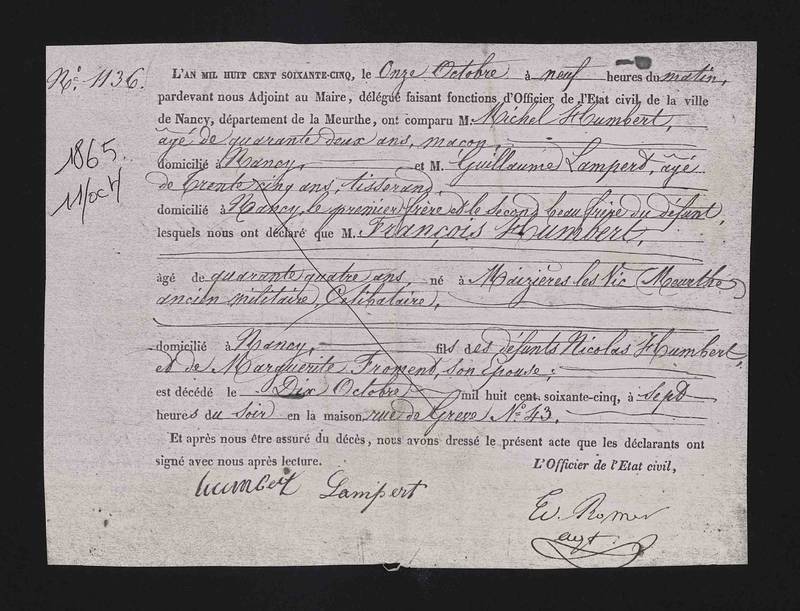 N.° 1136.
1865.
11/oct
L'AN MIL HUIT CENT SOIXANTE-CINQ, le Onze Octobre à neuf heures du matin,
pardevant nous Adjoint au Maire, délégué faisant fonctions d'Officier de l'Etat civil, de la ville
de Nancy, département de la Meurthe, ont comparu M. Michel Humbert,
âgé de quarante deux ans, maçon,
domicilié à Nancy, et M. Guillaume Lampert, âgé
de trente cinq ans, tisserand,
domicilié à Nancy, le premier frère et le second beau frère du défunt,
lesquels nous ont déclaré que M. François Humbert,
âgé de quarante quatre ans, né à Maizières les Vic (Meurthe)
ancien militaire, Célibataire,
domicilié à Nancy, fils des défunts Nicolas Humbert,
et de Marguerite Froment, son épouse;
est décédé le Dix Octobre mil huit cent soixante-cinq, à sept
heures du soir en la maison rue de Grève N.° 43.
Et après nous être assuré du décès, nous avons dressé le présent acte que les déclarants ont
signé avec nous après lecture. L'Officier de l'Etat civil,
humbert Lampert